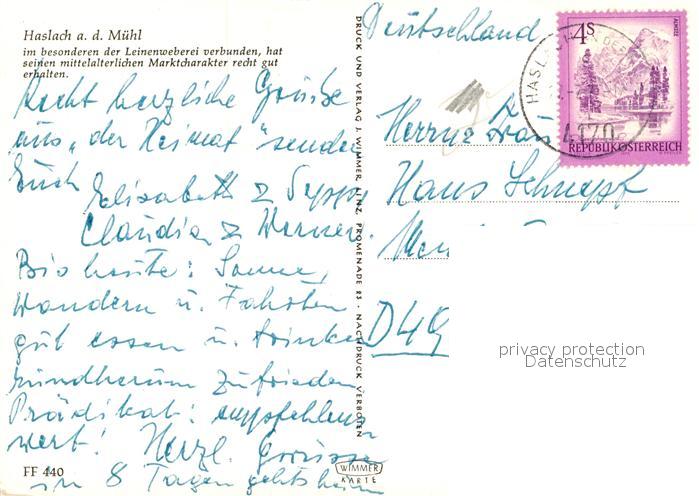 Haslach a. d. Mühl
im besonderen der Leinenweberei verbunden, hat
seinen mittelalterlichen Marktcharakter recht gut
erhalten.
Recht herzliche Grüsse
aus "der Heimat" senden
Euch
Elisabeth & Seppi
Claudia & Werner.
Bis heute: Sonne,
Wandern u. Fahrten
gut essen u. trinken
rundherum zufrieden
Prädikat: empfehlens
wert! Herzl. Grüsse
in 8 Tagen gehts heim
FF 440
DRUCK UND VERLAG J. WIMMER, LINZ, PROMENADE 23 · NACHDRUCK VERBOTEN
WIMMER
KARTE
Deutschland
4S
ALMSEE
HASLACH AN DER
4170
REPUBLIK ÖSTERREICH
Herrn & Frau
Hans Schnepf
D 49
privacy protection
Datenschutz